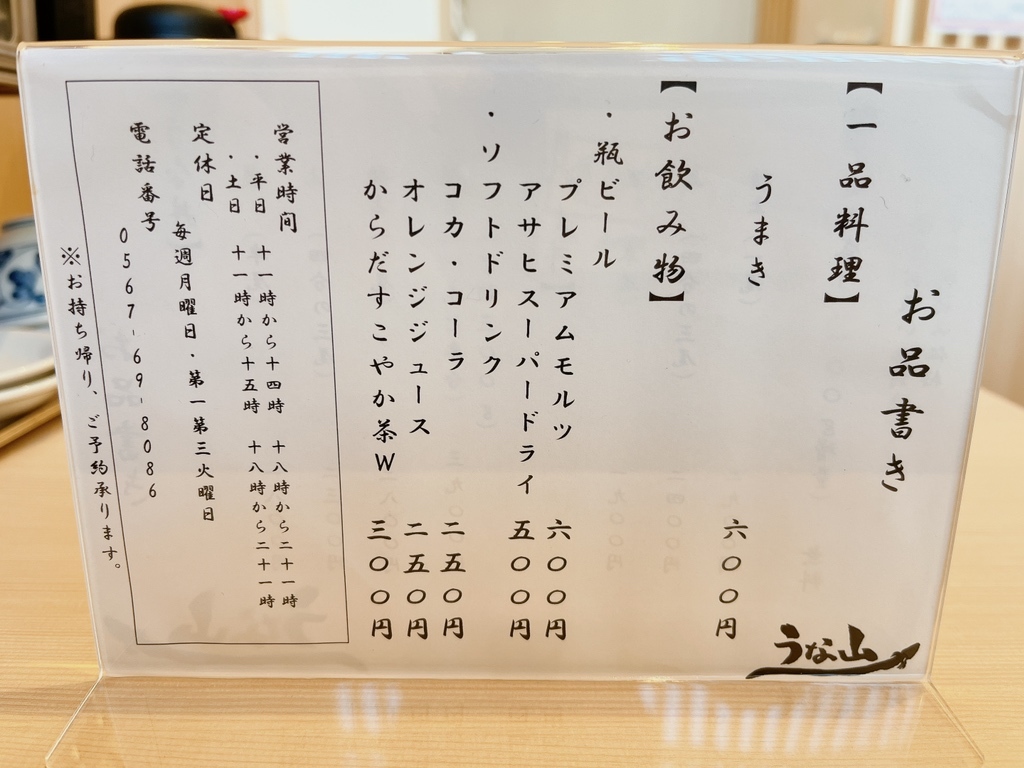 お品書き
【一品料理】
うまき 六〇〇円
【お飲み物】
・瓶ビール
プレミアムモルツ 六〇〇円
アサヒスーパードライ 五〇〇円
・ソフトドリンク
コカ・コーラ 二五〇円
オレンジジュース 二五〇円
からだすこやか茶W 三〇〇円
営業時間
・平日 十一時から十四時 十八時から二十一時
・土日 十一時から十五時 十八時から二十一時
定休日
毎週月曜日・第一第三火曜日
電話番号
0567-69-8086
※お持ち帰り、ご予約承ります。
うな山